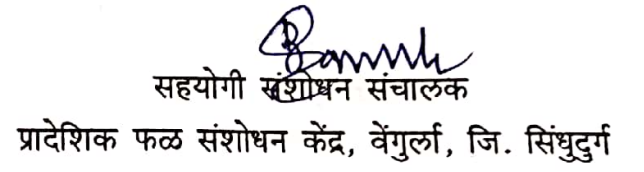 सहयोगी संशोधन संचालक
प्रादेशिक फळ संशोधन केंद्र, वेंगुर्ला, जि. सिंधुदुर्ग